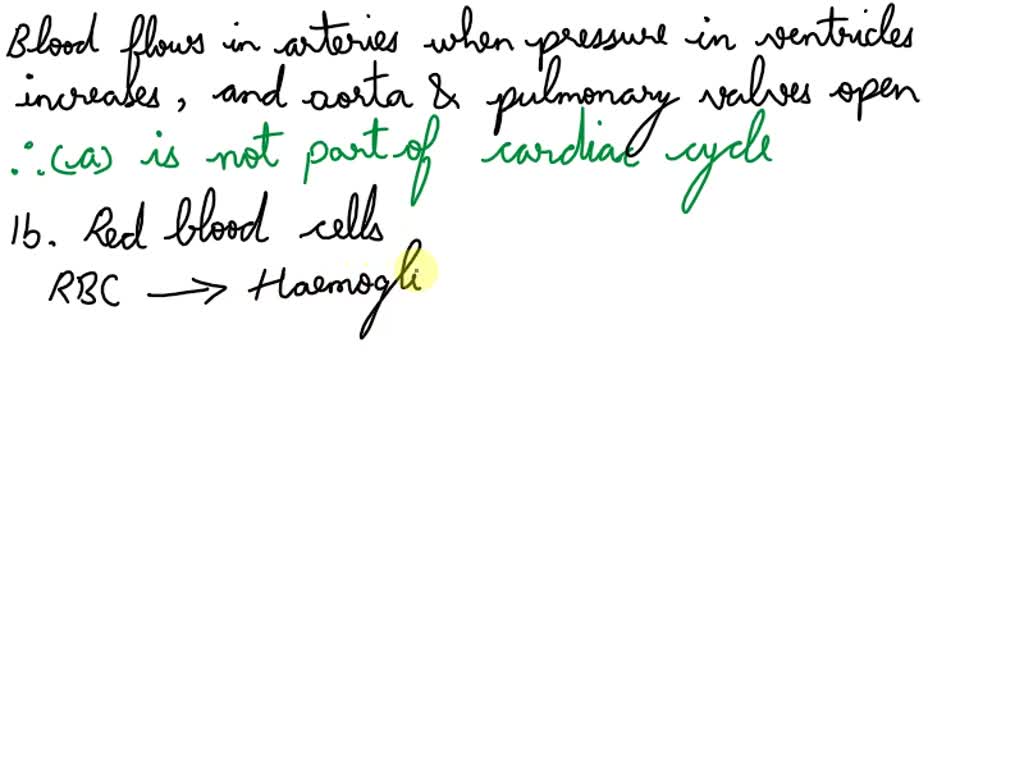 Blood flows in arteries when pressure in ventricles
increases, and aorta & pulmonary valves open
∴ (a) is not part of cardiac cycle
16. Red blood cells
RBC → Haemogli